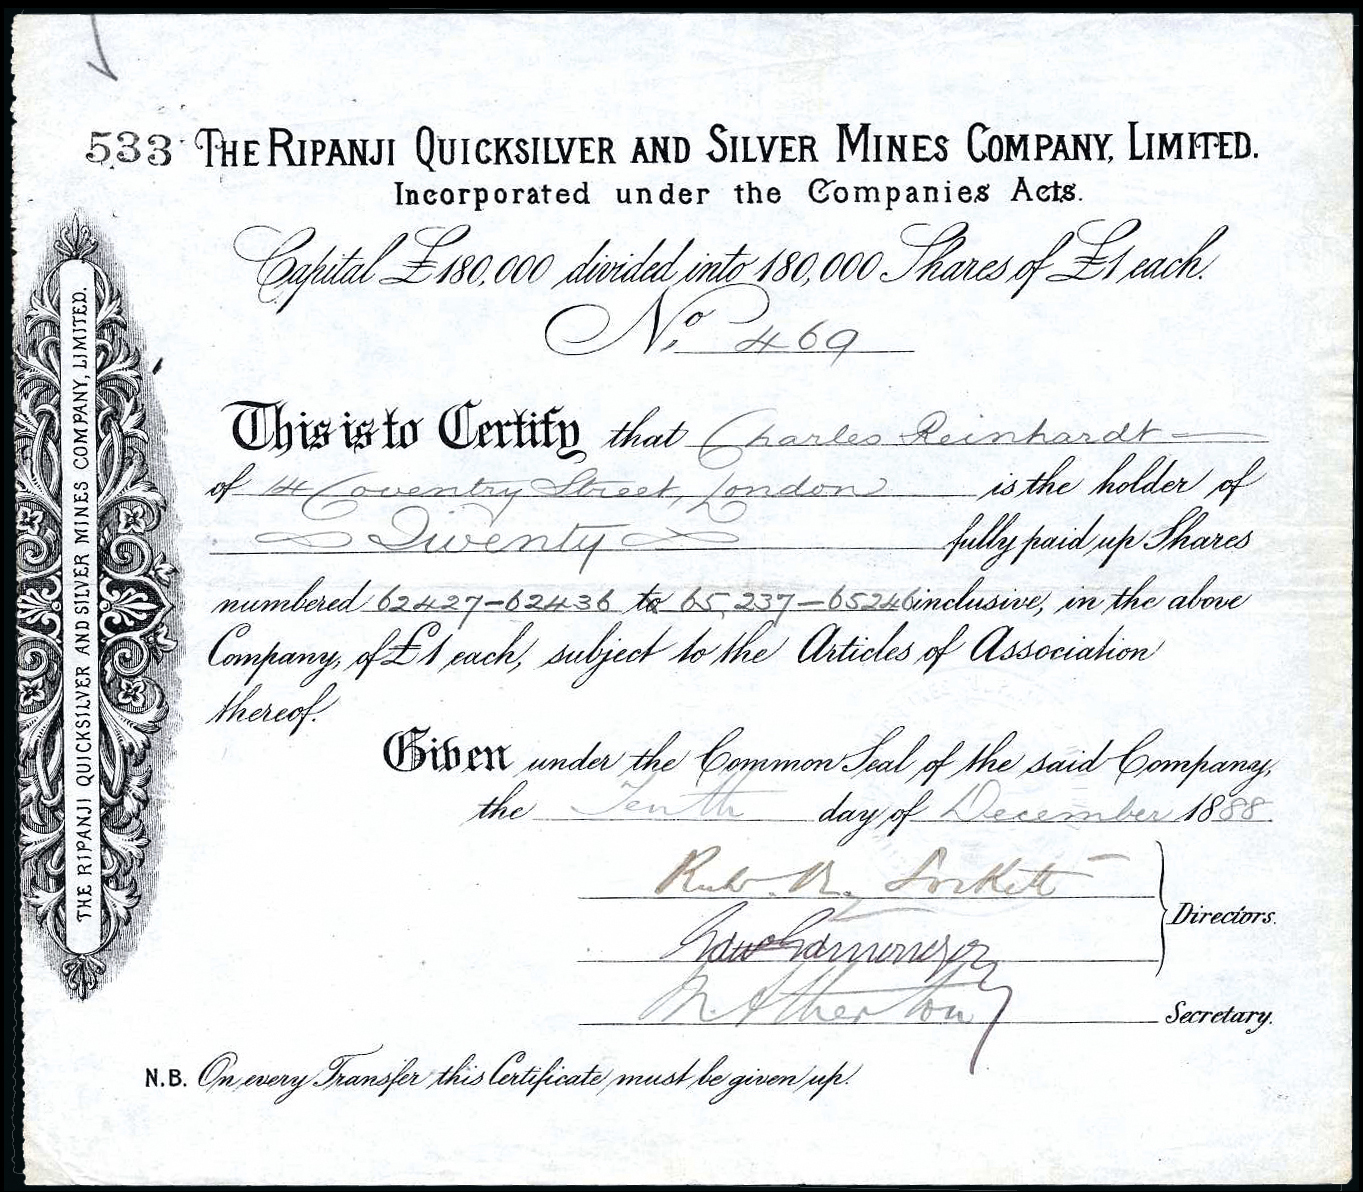 533 THE RIPANJI QUICKSILVER AND SILVER MINES COMPANY, LIMITED.
Incorporated under the Companies Acts.
Capital £180,000 divided into 180,000 Shares of £1 each.
No. 469
This is to Certify that Charles Reinhardt
of 14 Coventry Street, London is the holder of
Twenty fully paid up Shares
numbered 62427-62436 to 65,237-65246 inclusive, in the above
Company, of £1 each, subject to the Articles of Association
thereof.
Given under the Common Seal of the said Company,
the Tenth day of December 1888.
Directors.
Atherton
Secretary.
N.B. On every Transfer this Certificate must be given up.
THE RIPANJI QUICKSILVER AND SILVER MINES COMPANY, LIMITED.